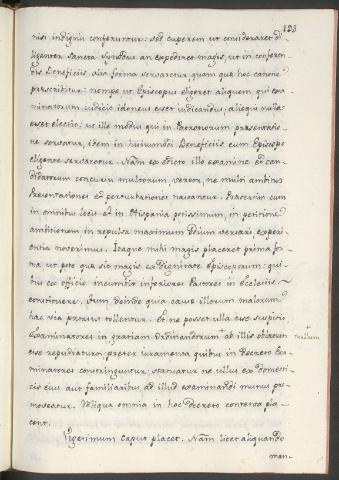 128
nisi indignis conferuntur: sed cuperem ut consideraret di-
ligenter sancta synodus an expediret magis, ut in conferen-
dis Beneficiis, alia forma servaretur, quam quæ hoc canone
præscribitur: nempe ut Episcopus eligeret aliquem, qui exa-
minatorum iudicio idoneus esset iudicandus, alioqui nulla
esset electio: ut ille modus qui in Patronorum præsentatio-
ne servatur, idem in huiusmodi Beneficiis cum Episcopo
eligente servaretur. Nam ex edicto illo examine et can-
didatorum concursu multorum, vereor, ne multi ambitus
Præsentationes et perturbationes nascantur. Præsertim cum
in omnibus locis et in Hispania potissimum, in petitione
ambitionem in repulsa maximum odium versari experi-
entia noverimus. Itaque mihi magis placeret prima for-
ma ut pote quæ sit magis ex Dignitate Episcoporum: qui-
bus ex officio incumbit inferiores Pastores in Ecclesiis
constituere. Tum deinde quia causæ illorum malorum
hac via prorsus tollentur. Et ne posset ulla esse suspicio
examinatores in gratiam ordinandorum ab illis oblatum
+ nullum
esse repudiaturos, præter iuramenta quibus in Decreto Exa-
minatores constringuntur, statuatur ne ullus ex domesti-
cis eius aut familiaribus ad illud examinandi munus pro-
moveatur. Reliqua omnia in hoc Decreto contenta pla-
cent.
Vigesimum Caput placet. Nam licet aliquando
man-